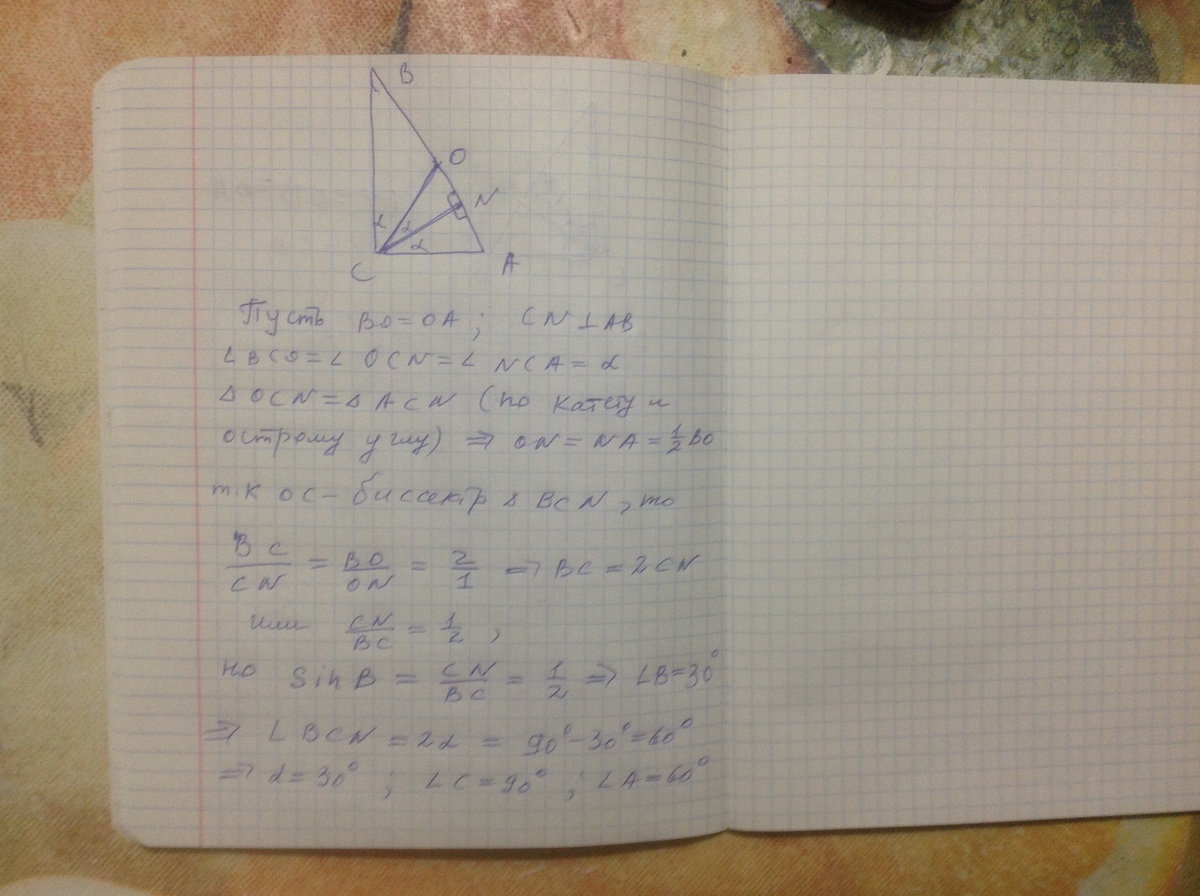 B
O
N
α
α
α
C
A
Пусть BO = OA ; CN ⊥ AB
∠ BCO = ∠ OCN = ∠ NCA = α
Δ OCN = Δ ACN (по катету и
острому углу) ⇒ ON = NA = 1/2 BO
т.к OC – биссектр Δ BCN , то
BC/CN = BO/ON = 2/1 ⇒ BC = 2CN
или CN/BC = 1/2 ,
но Sin B = CN/BC = 1/2 ⇒ ∠B=30°
⇒ ∠ BCN = 2α = 90° – 30° = 60°
⇒ α = 30° ; ∠C = 90° ; ∠A = 60°